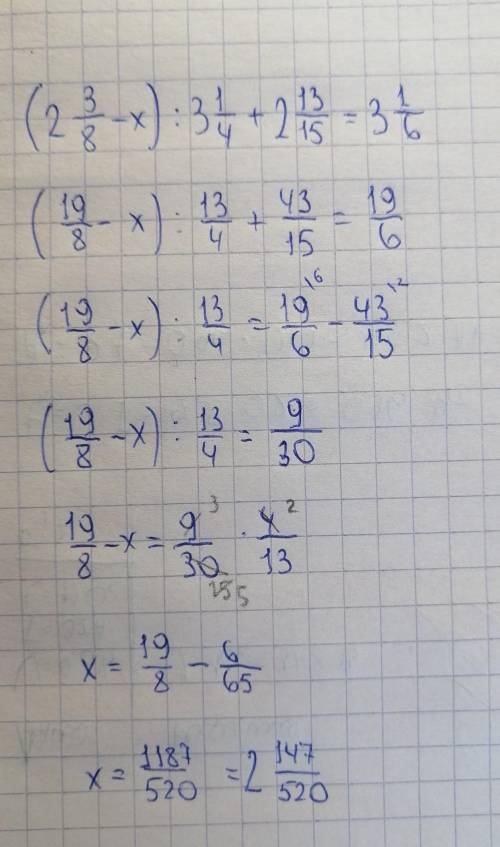 (2 3/8 - x) : 3 1/4 + 2 13/15 = 3 1/6
(19/8 - x) : 13/4 + 43/15 = 19/6
(19/8 - x) : 13/4 = 19/6 \6 - 43/15 \2
(19/8 - x) : 13/4 = 9/30
19/8 - x = 9/30 3 · 4/13 2
15 5
x = 19/8 - 6/65
x = 1187/520 = 2 147/520